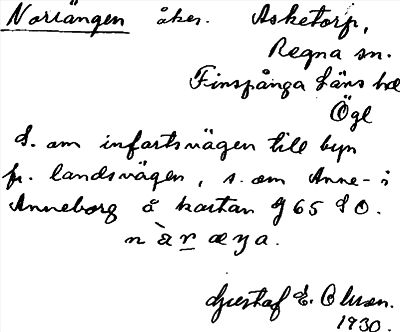 Nariängen åker. Asketorp,
Regna sn.
Finspånga läns hd
Ögl
S. om infartsvägen till byn
fr. landsvägen, s. om Anne- i
Anneborg å kartan J 65 SO.
n à r æŋa.
Gustaf E. Olsson.
1930.